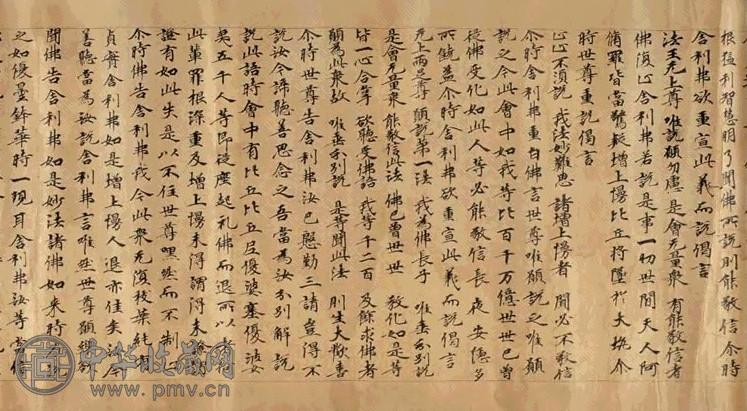 根猛利智慧明了聞佛所說則能敬信尒時
舍利弗欲重宣此義而說偈言
法王无上尊 唯說願勿慮 是會无量衆 有能敬信者
佛復止舍利弗若說是事一切世間天人阿
脩羅皆當驚疑增上慢比丘將墜於大坑尒
時世尊重說偈言
止止不須說 我法妙難思 諸增上慢者 聞必不敬信
尒時舍利弗重白佛言世尊唯願說之唯願
說之今此會中如我等比百千万億世世已曾
從佛受化如此人等必能敬信長夜安隱多
所饒益尒時舍利弗欲重宣此義而說偈言
无上兩足尊 願說第一法 我為佛長子 唯垂分別說
是會无量衆 能敬信此法 佛已曾世世 教化如是等
皆一心合掌 欲聽受佛語 我等千二百 及餘求佛者
願為此衆故 唯垂分別說 是等聞此法 則生大歡喜
尒時世尊告舍利弗汝已慇懃三請豈得不
說汝今諦聽善思念之吾當為汝分別解說
說此語時會中有比丘比丘尼優婆塞優婆
夷五千人等即從座起礼佛而退所以者
此輩罪根深重及增上慢未得謂得未證
證有如此失是以不住世尊嘿然而不制
尒時佛告舍利弗我今此衆无復枝葉純
貞實舍利弗如是增上慢人退亦佳矣汝今
善聽當為汝說舍利弗言唯然世尊願樂欲
聞佛告舍利弗如是妙法諸佛如來時
之如優曇鉢華時一現耳舍利弗汝等當信
中华收藏网
www.pmv.cn